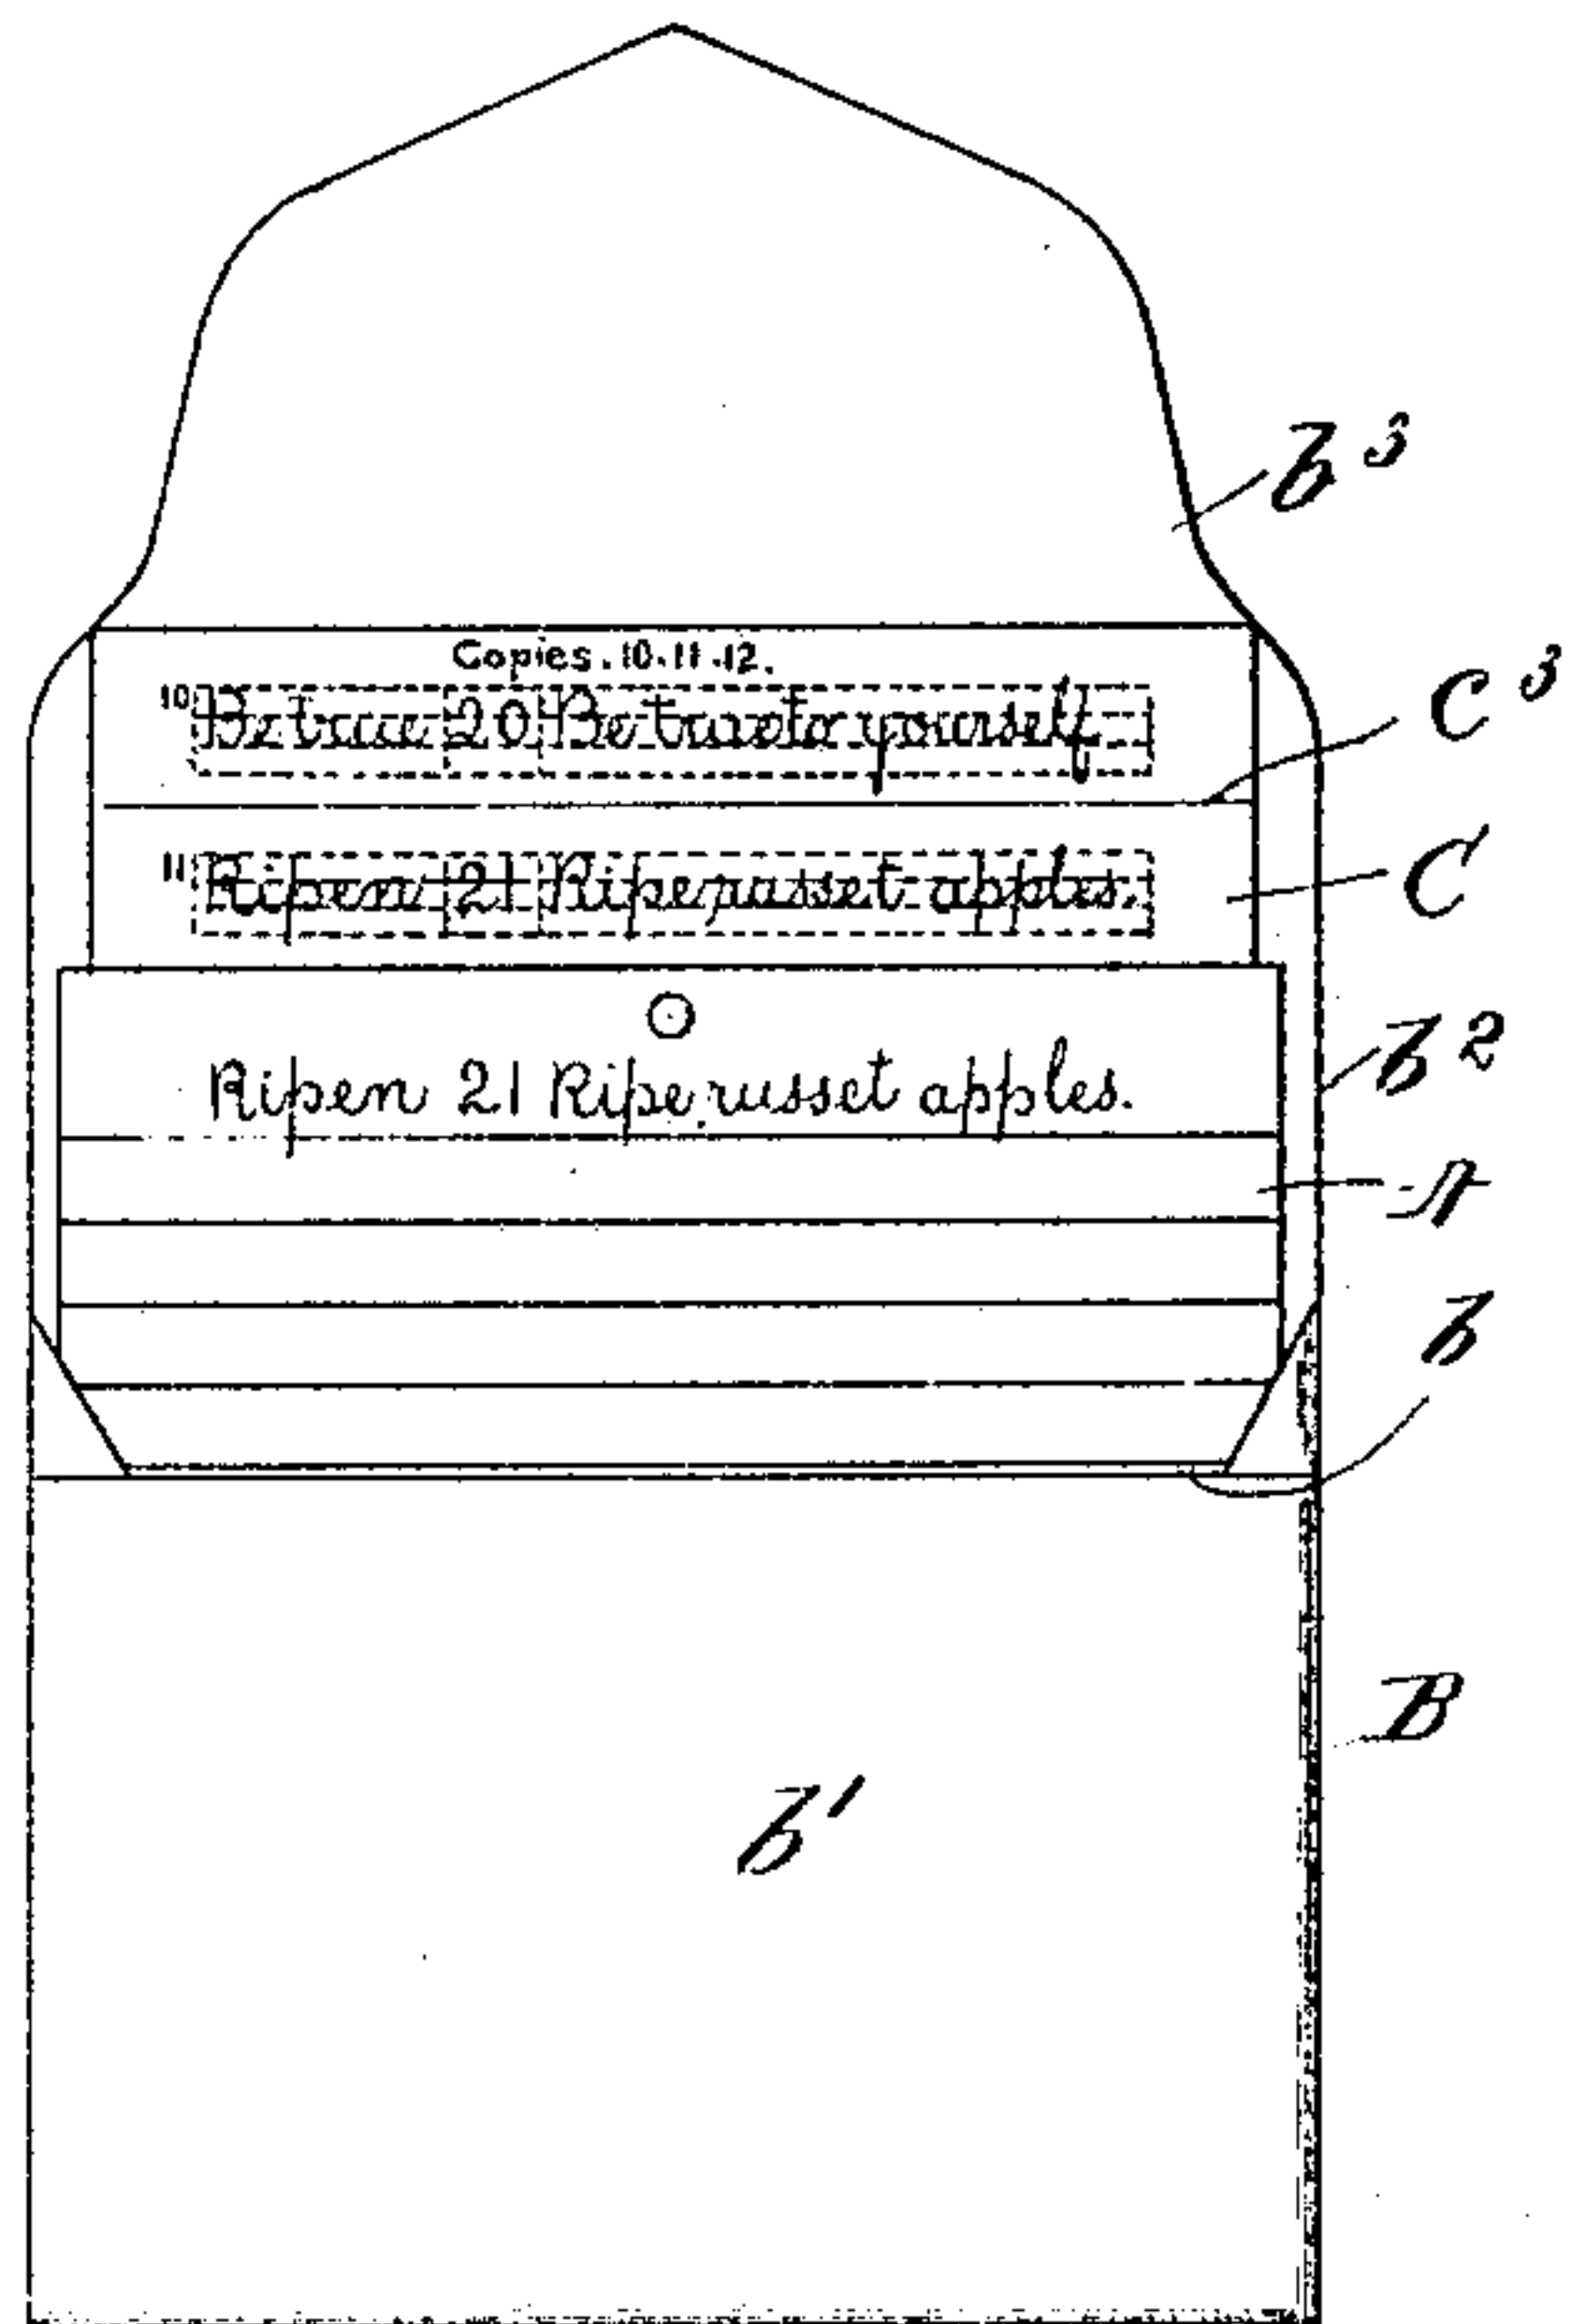 b³
Copies. 10. 11. 12.
10 Be true 20 Be true to yourself
C³
11 Ripen 21 Ripe russet apples.
C
Ripen 21 Ripe russet apples.
b²
A
b
B
b'